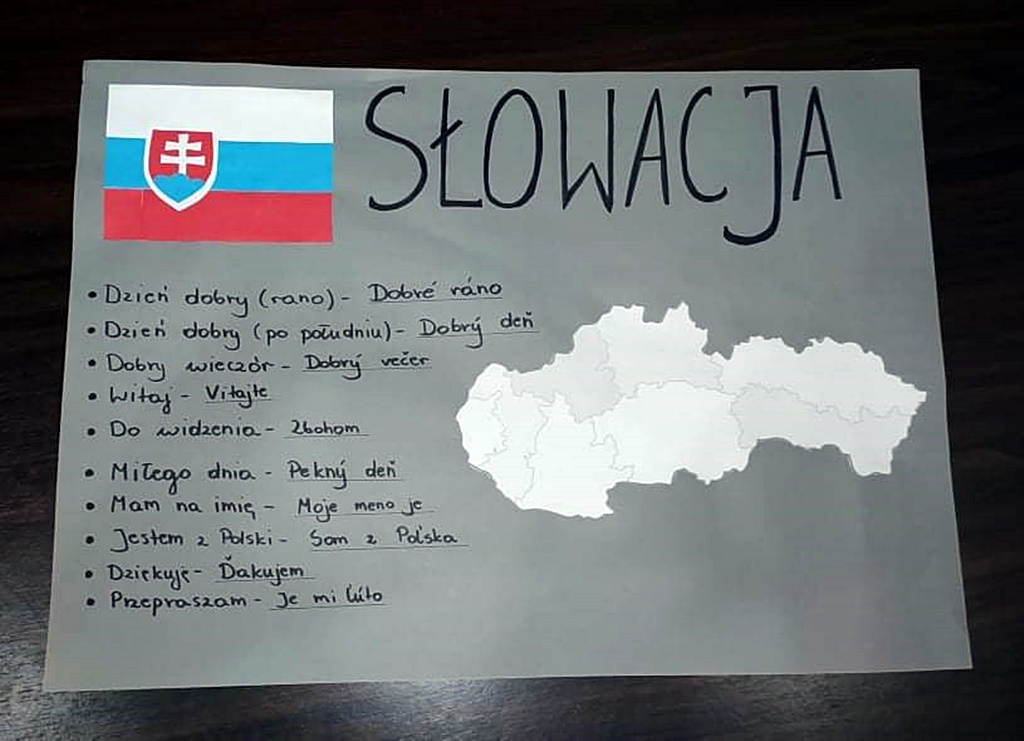 SŁOWACJA
• Dzień dobry (rano) - Dobré ráno
• Dzień dobry (po południu) - Dobrý deň
• Dobry wieczór - Dobrý večer
• Witaj - Vitajte
• Do widzenia - Zbohom
• Miłego dnia - Pekný deň
• Mam na imię - Moje meno je
• Jestem z Polski - Som z Poľska
• Dziękuję - Ďakujem
• Przepraszam - Je mi ľúto